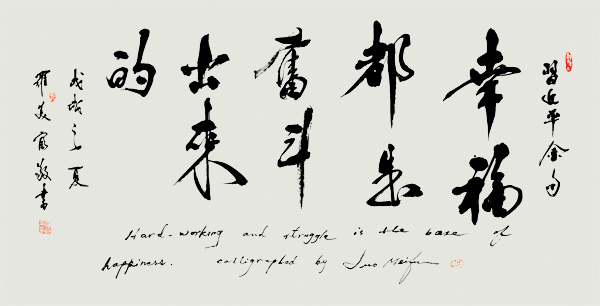 習近平金句
幸福
都是
奮斗
出來
的
戊戌之夏
羅美富敬書
Hard-working and struggle is the base of
happiness. calligraphed by Luo Meifu